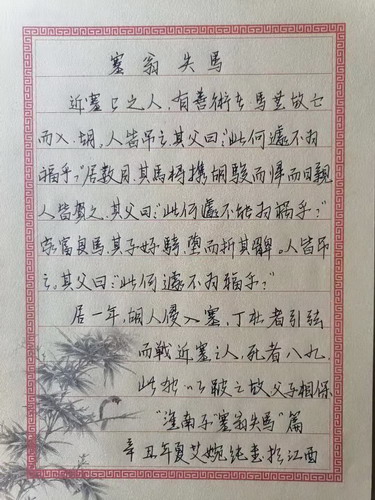 塞翁失馬
近塞上之人，有善術者，馬無故亡
而入胡，人皆吊之，其父曰："此何遽不为
福乎？"居數月，其馬将攜胡駿而歸而
人皆賀之，其父曰："此何遽不能为禍乎？"
家富良馬，其子好騎，墮而折其髀。人皆吊
之。其父曰："此何遽不为福乎？"
居一年，胡人侵入塞，丁壯者引弦
而戰近塞之人，死者八九，
此独以跛之故，父子相保
"淮南子""塞翁失馬"篇
辛丑年夏艾婉纯書於江西